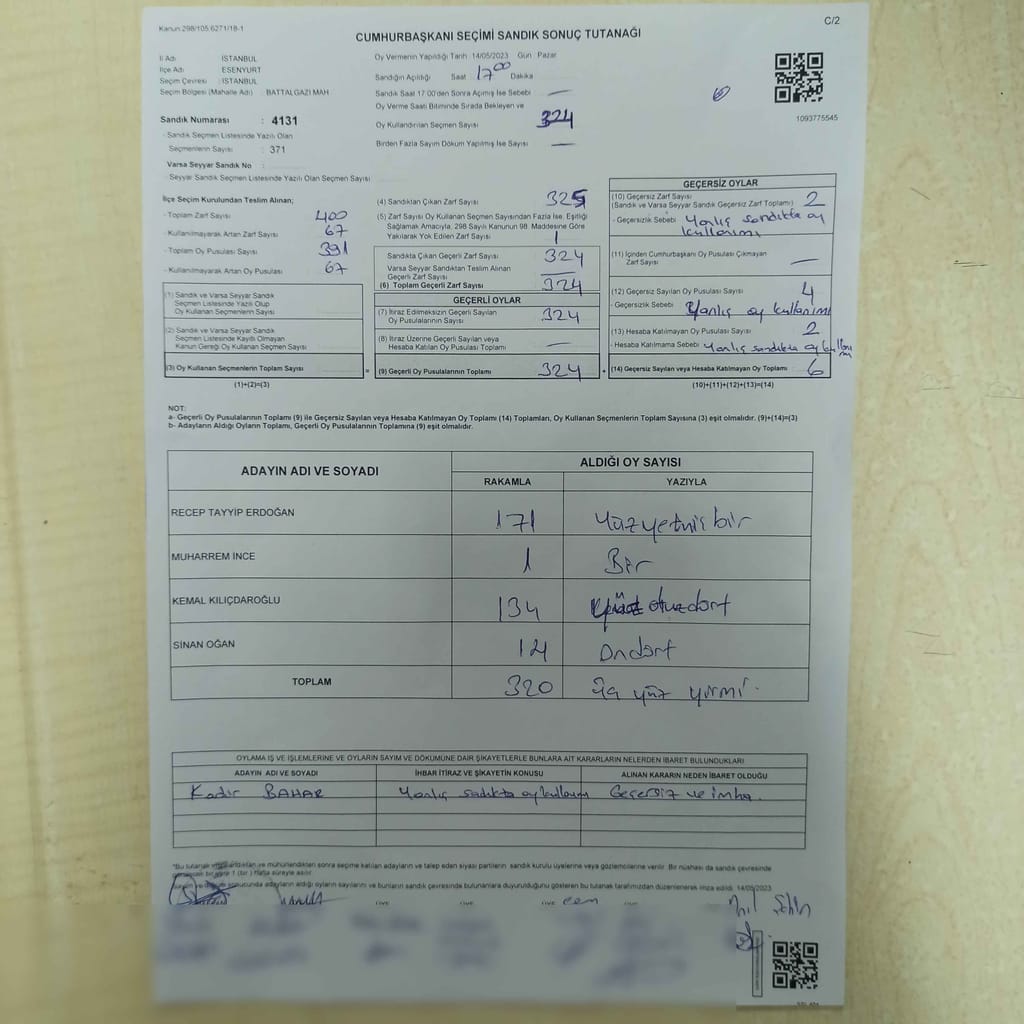 Kanun:298/105.6271/18-1
C/2
CUMHURBAŞKANI SEÇİMİ SANDIK SONUÇ TUTANAĞI
İl Adı : İSTANBUL
İlçe Adı : ESENYURT
Seçim Çevresi : İSTANBUL
Seçim Bölgesi (Mahalle Adı) : BATTALGAZI MAH
Oy Vermenin Yapıldığı Tarih 14/05/2023 Gün Pazar
Sandığın Açıldığı Saat 17 00 Dakika
Sandık Saat 17.00'den Sonra Açımış İse Sebebi —
Oy Verme Saati Bitiminde Sırada Bekleyen ve
Oy Kullandırılan Seçmen Sayısı 324
Birden Fazla Sayım Döküm Yapılmış İse Sayısı —
1093775545
Sandık Numarası : 4131
- Sandık Seçmen Listesinde Yazılı Olan
Seçmenlerin Sayısı : 371
Varsa Seyyar Sandık No
- Seyyar Sandık Seçmen Listesinde Yazılı Olan Seçmen Sayısı
İlçe Seçim Kurulundan Teslim Alınan;
- Toplam Zarf Sayısı 400
- Kullanılmayarak Artan Zarf Sayısı 67
- Toplam Oy Pusulası Sayısı 391
- Kullanılmayarak Artan Oy Pusulası 67
(1) Sandık ve Varsa Seyyar Sandık
Seçmen Listesinde Yazılı Olup
Oy Kullanan Seçmen Sayısı
(2) Sandık ve Varsa Seyyar Sandık
Seçmen Listesinde Kayıtlı Olmayan
Kanun Gereği Oy Kullanan Seçmen Sayısı
(3) Oy Kullanan Seçmenlerin Toplam Sayısı
(1)+(2)=(3)
(4) Sandıktan Çıkan Zarf Sayısı 325
(5) Zarf Sayısı Oy Kullanan Seçmen Sayısından Fazla İse, Eşitliği
Sağlamak Amacıyla, 298 Sayılı Kanunun 98. Maddesine Göre
Yakılarak Yok Edilen Zarf Sayısı 1
Sandıkta Çıkan Geçerli Zarf Sayısı 324
Varsa Seyyar Sandıktan Teslim Alınan
Geçerli Zarf Sayısı —
(6) Toplam Geçerli Zarf Sayısı 324
GEÇERLİ OYLAR
(7) İtiraz Edilmeksizin Geçerli Sayılan
Oy Pusulalarının Sayısı 324
(8) İtiraz Üzerine Geçerli Sayılan veya
Hesaba Katılan Oy Pusulası Toplamı —
= (9) Geçerli Oy Pusulalarının Toplamı 324
GEÇERSİZ OYLAR
(10) Geçersiz Zarf Sayısı
(Sandık ve Varsa Seyyar Sandık Geçersiz Zarf Toplamı) 2
- Geçersizlik Sebebi Yanlış sandıkta oy
kullanımı
(11) İçinden Cumhurbaşkanı Oy Pusulası Çıkmayan
Zarf Sayısı —
(12) Geçersiz Sayılan Oy Pusulası Sayısı 4
- Geçersizlik Sebebi Yanlış oy kullanımı
(13) Hesaba Katılmayan Oy Pusulası Sayısı 2
- Hesaba Katılmama Sebebi Yanlış sandıkta oy kullanımı
+ (14) Geçersiz Sayılan veya Hesaba Katılmayan Oy Toplamı 6
(10)+(11)+(12)+(13)=(14)
NOT:
a- Geçerli Oy Pusulalarının Toplamı (9) ile Geçersiz Sayılan veya Hesaba Katılmayan Oy Toplamı (14) Toplamları, Oy Kullanan Seçmenlerin Toplam Sayısına (3) eşit olmalıdır. (9)+(14)=(3)
b- Adayların Aldığı Oyların Toplamı, Geçerli Oy Pusulalarının Toplamına (9) eşit olmalıdır.
ADAYIN ADI VE SOYADI
ALDIĞI OY SAYISI
RAKAMLA YAZIYLA
RECEP TAYYİP ERDOĞAN 171 Yüzyetmişbir
MUHARREM İNCE 1 Bir
KEMAL KILIÇDAROĞLU 134 otuzdört
SİNAN OĞAN 14 Ondört
TOPLAM 320 Üç yüz yirmi
OYLAMA İŞ VE İŞLEMLERİNE VE OYLARIN SAYIM VE DÖKÜMÜNE DAİR ŞİKAYETLERLE BUNLARA AİT KARARLARIN NELERDEN İBARET BULUNDUKLARI
ADAYIN ADI VE SOYADI İHBAR İTİRAZ VE ŞİKAYETİN KONUSU ALINAN KARARIN NEDEN İBARET OLDUĞU
Kadir BAHAR Yanlış sadıkta oy kullanım Geçersiz ve imha.
*Bu tutanak imzalandıktan ve mühürlendikten sonra seçime katılan adayların ve talep eden siyasi partilerin sandık kurulu üyelerine veya gözlemcilerine verilir. Bir nüshası da sandık çevresinde
1 (bir) hafta süreyle asılır
sonucunda adayların aldığı oyların sayılarını ve bunların sandık çevresinde bulunanlara duyurulduğunu gösteren bu tutanak tarafımızdan düzenlenerek imza edildi. 14/05/2023
ÜYE ÜYE ÜYE cem ÜYE